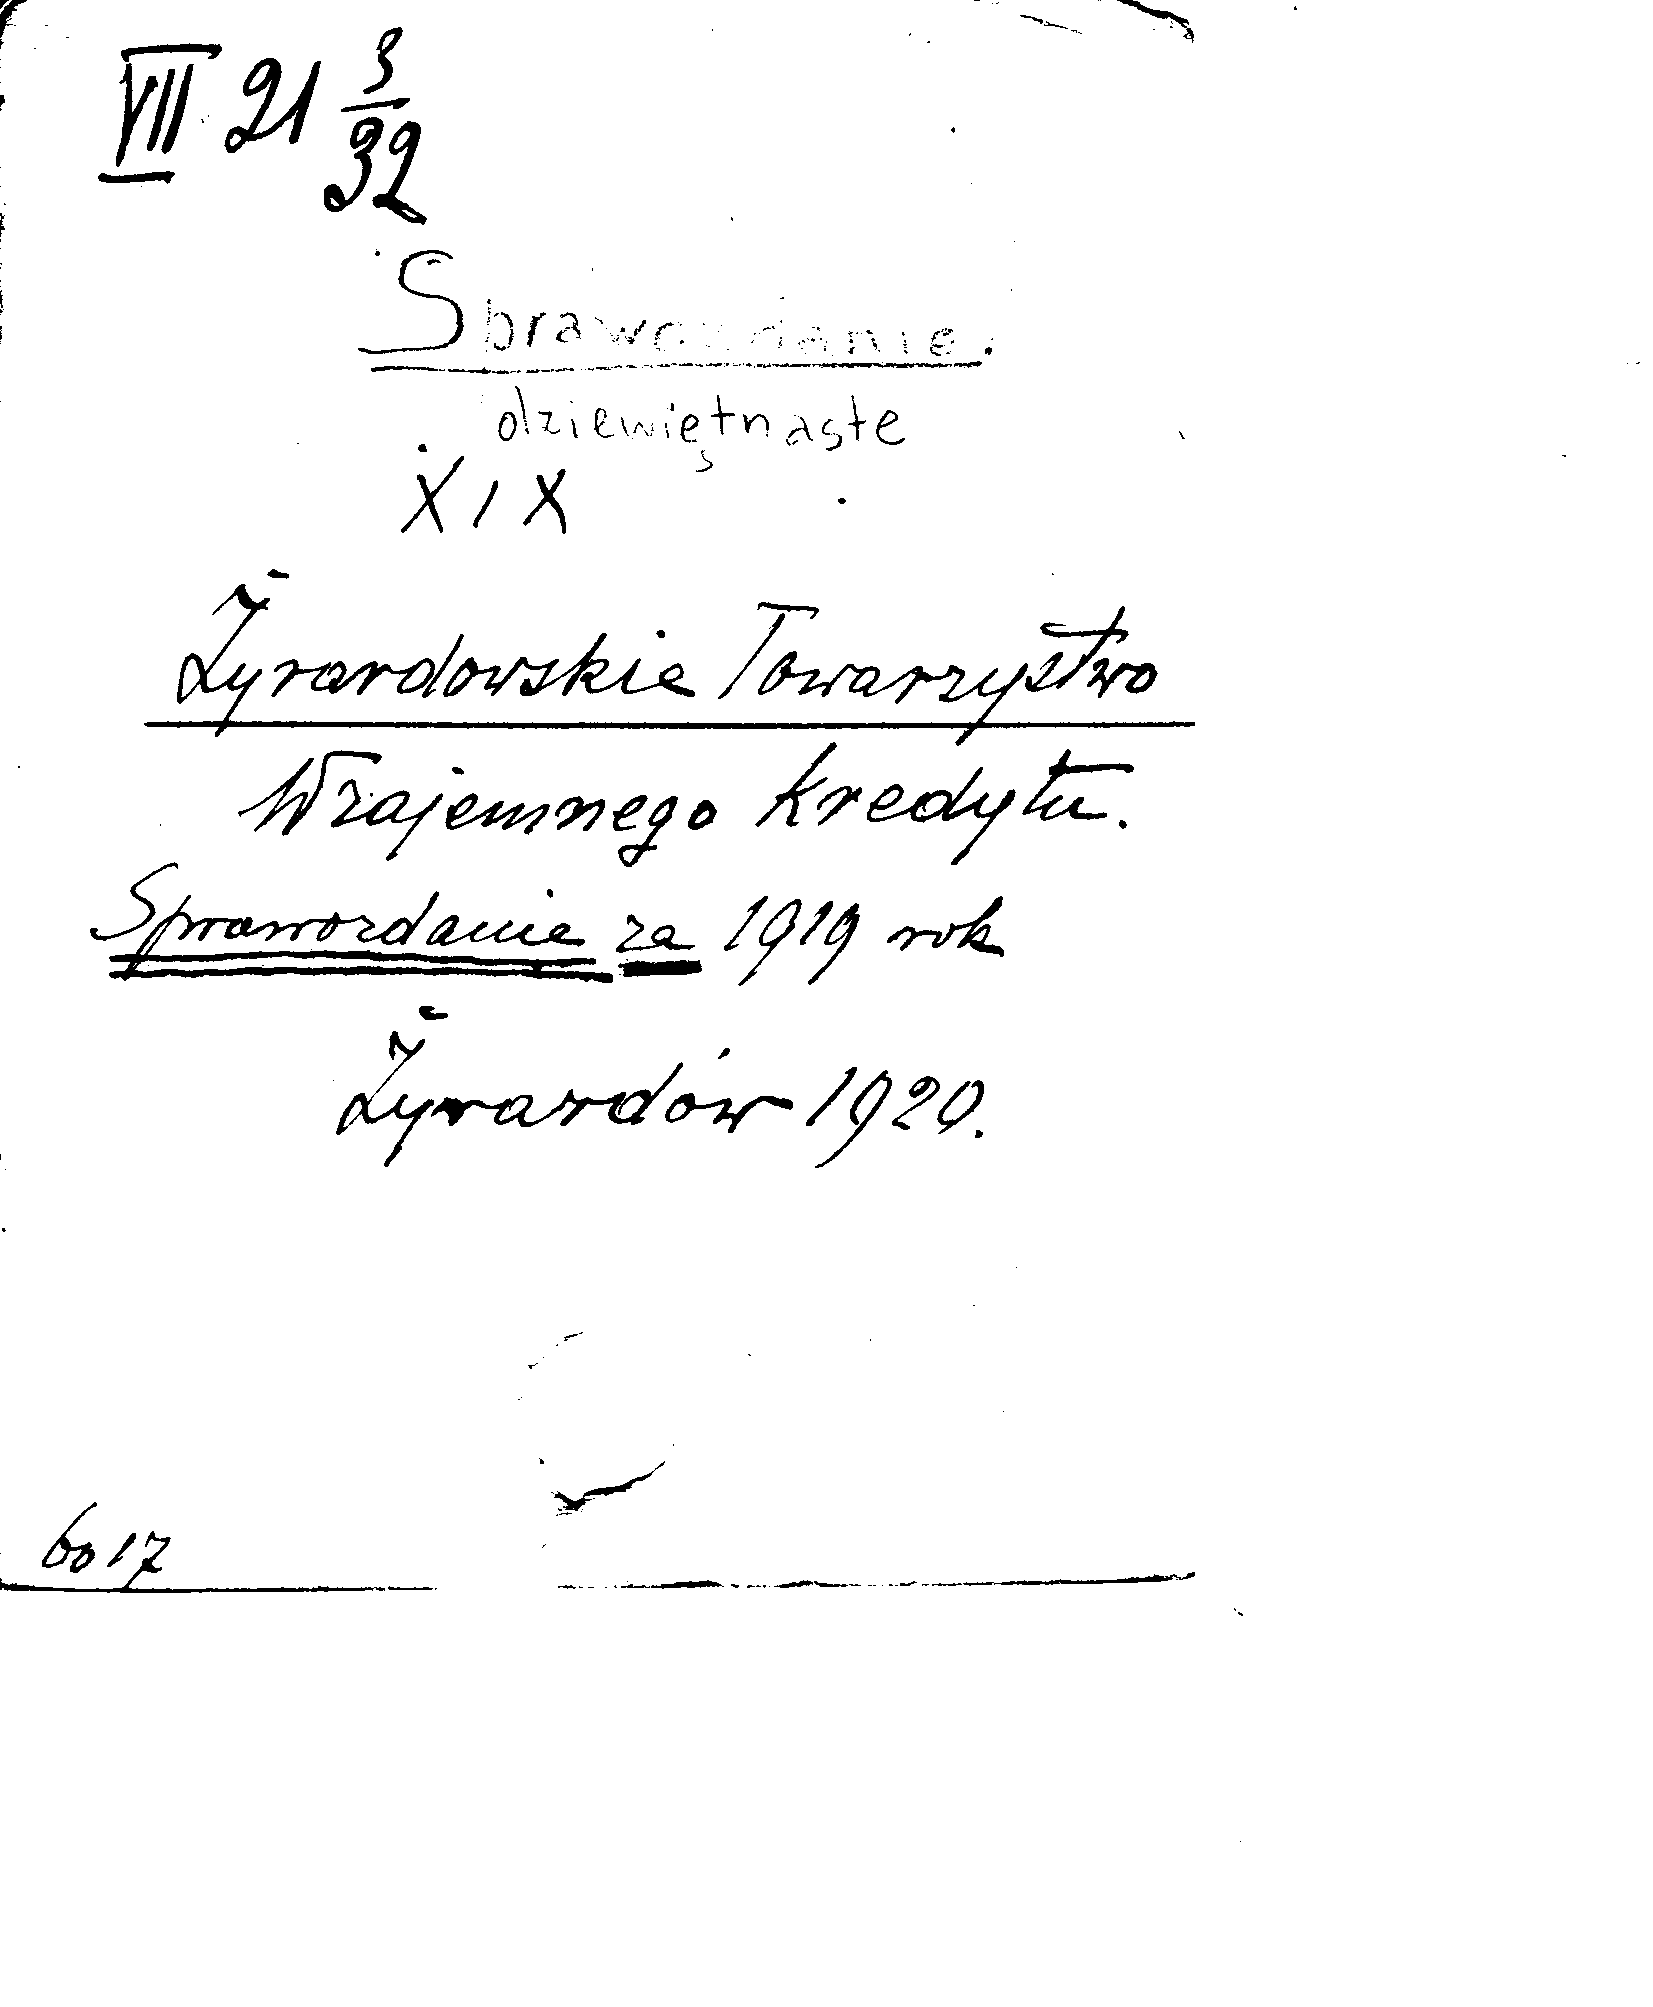 VII 21 3/32
Sprawozdanie.
dziewiętnaste
XIX
Żyrardowskie Towarzystwo
Wzajemnego Kredytu.
Sprawozdanie za 1919 rok
Żyrardów 1920.
6017